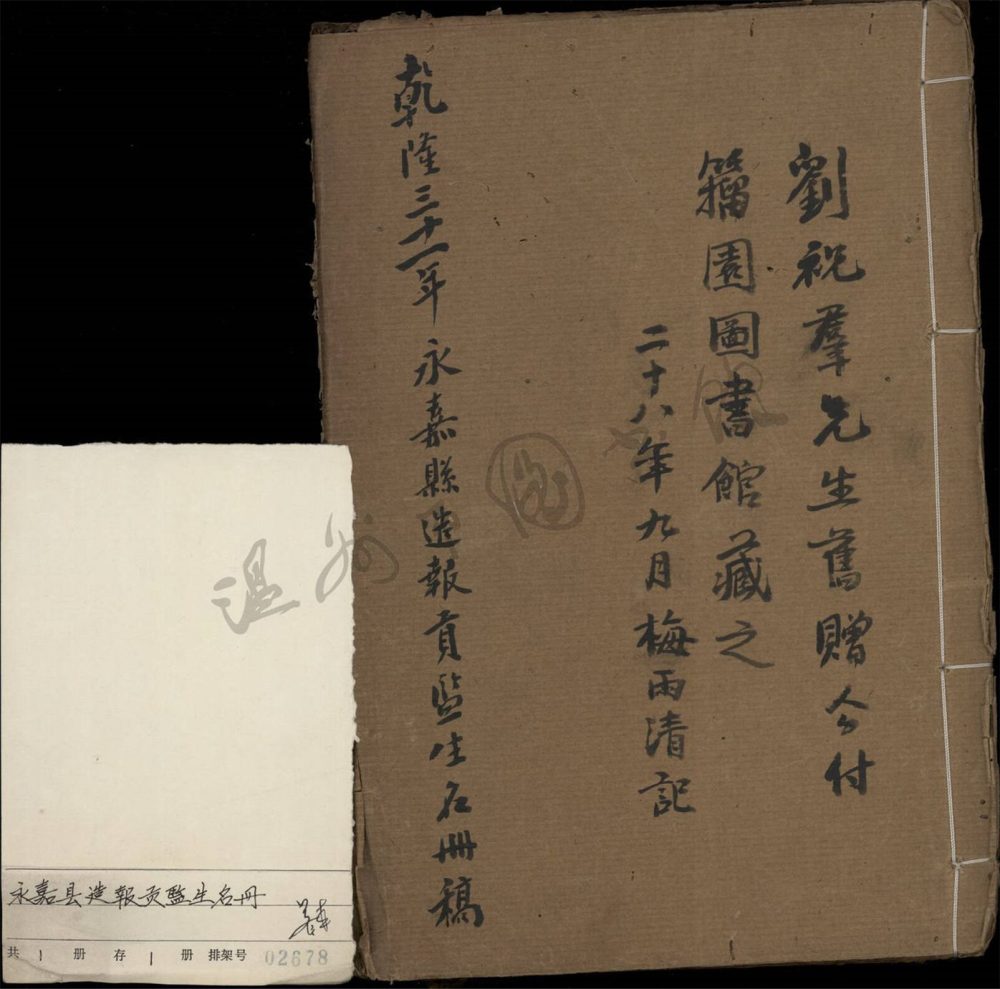 劉祝羣先生舊贈今付
籀園圖書館藏之
二十八年九月梅雨清記
乾隆三十一年永嘉縣造報貢監生名冊稿
温州
永嘉县造報贡監生名冊
共 1 册 存 1 册 排架号 02678